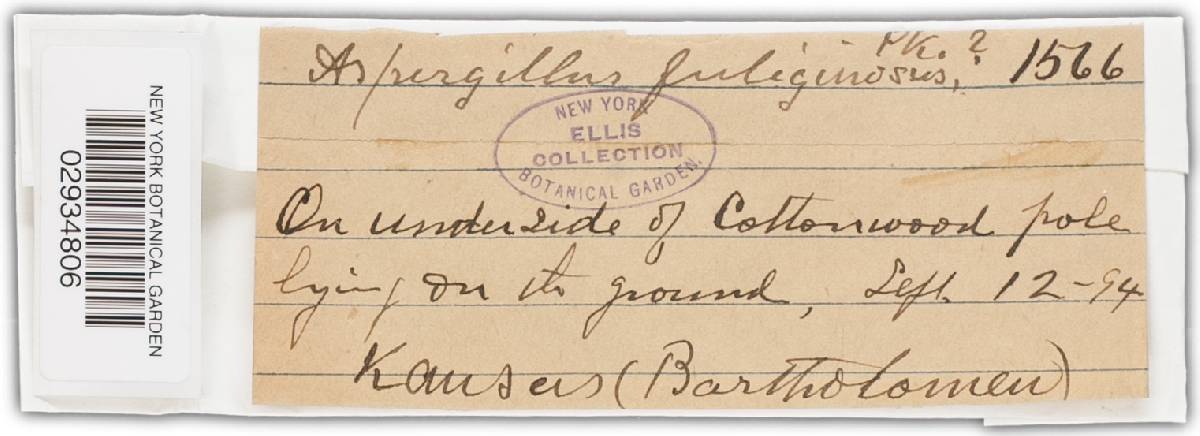 NEW YORK BOTANICAL GARDEN
02934806
Aspergillus fuliginosus, Pk. ? 1566
NEW YORK
ELLIS
COLLECTION
BOTANICAL GARDEN.
On underside of Cottonwood pole
lying on the ground, Sept. 12-94
Kansas (Bartholomew)